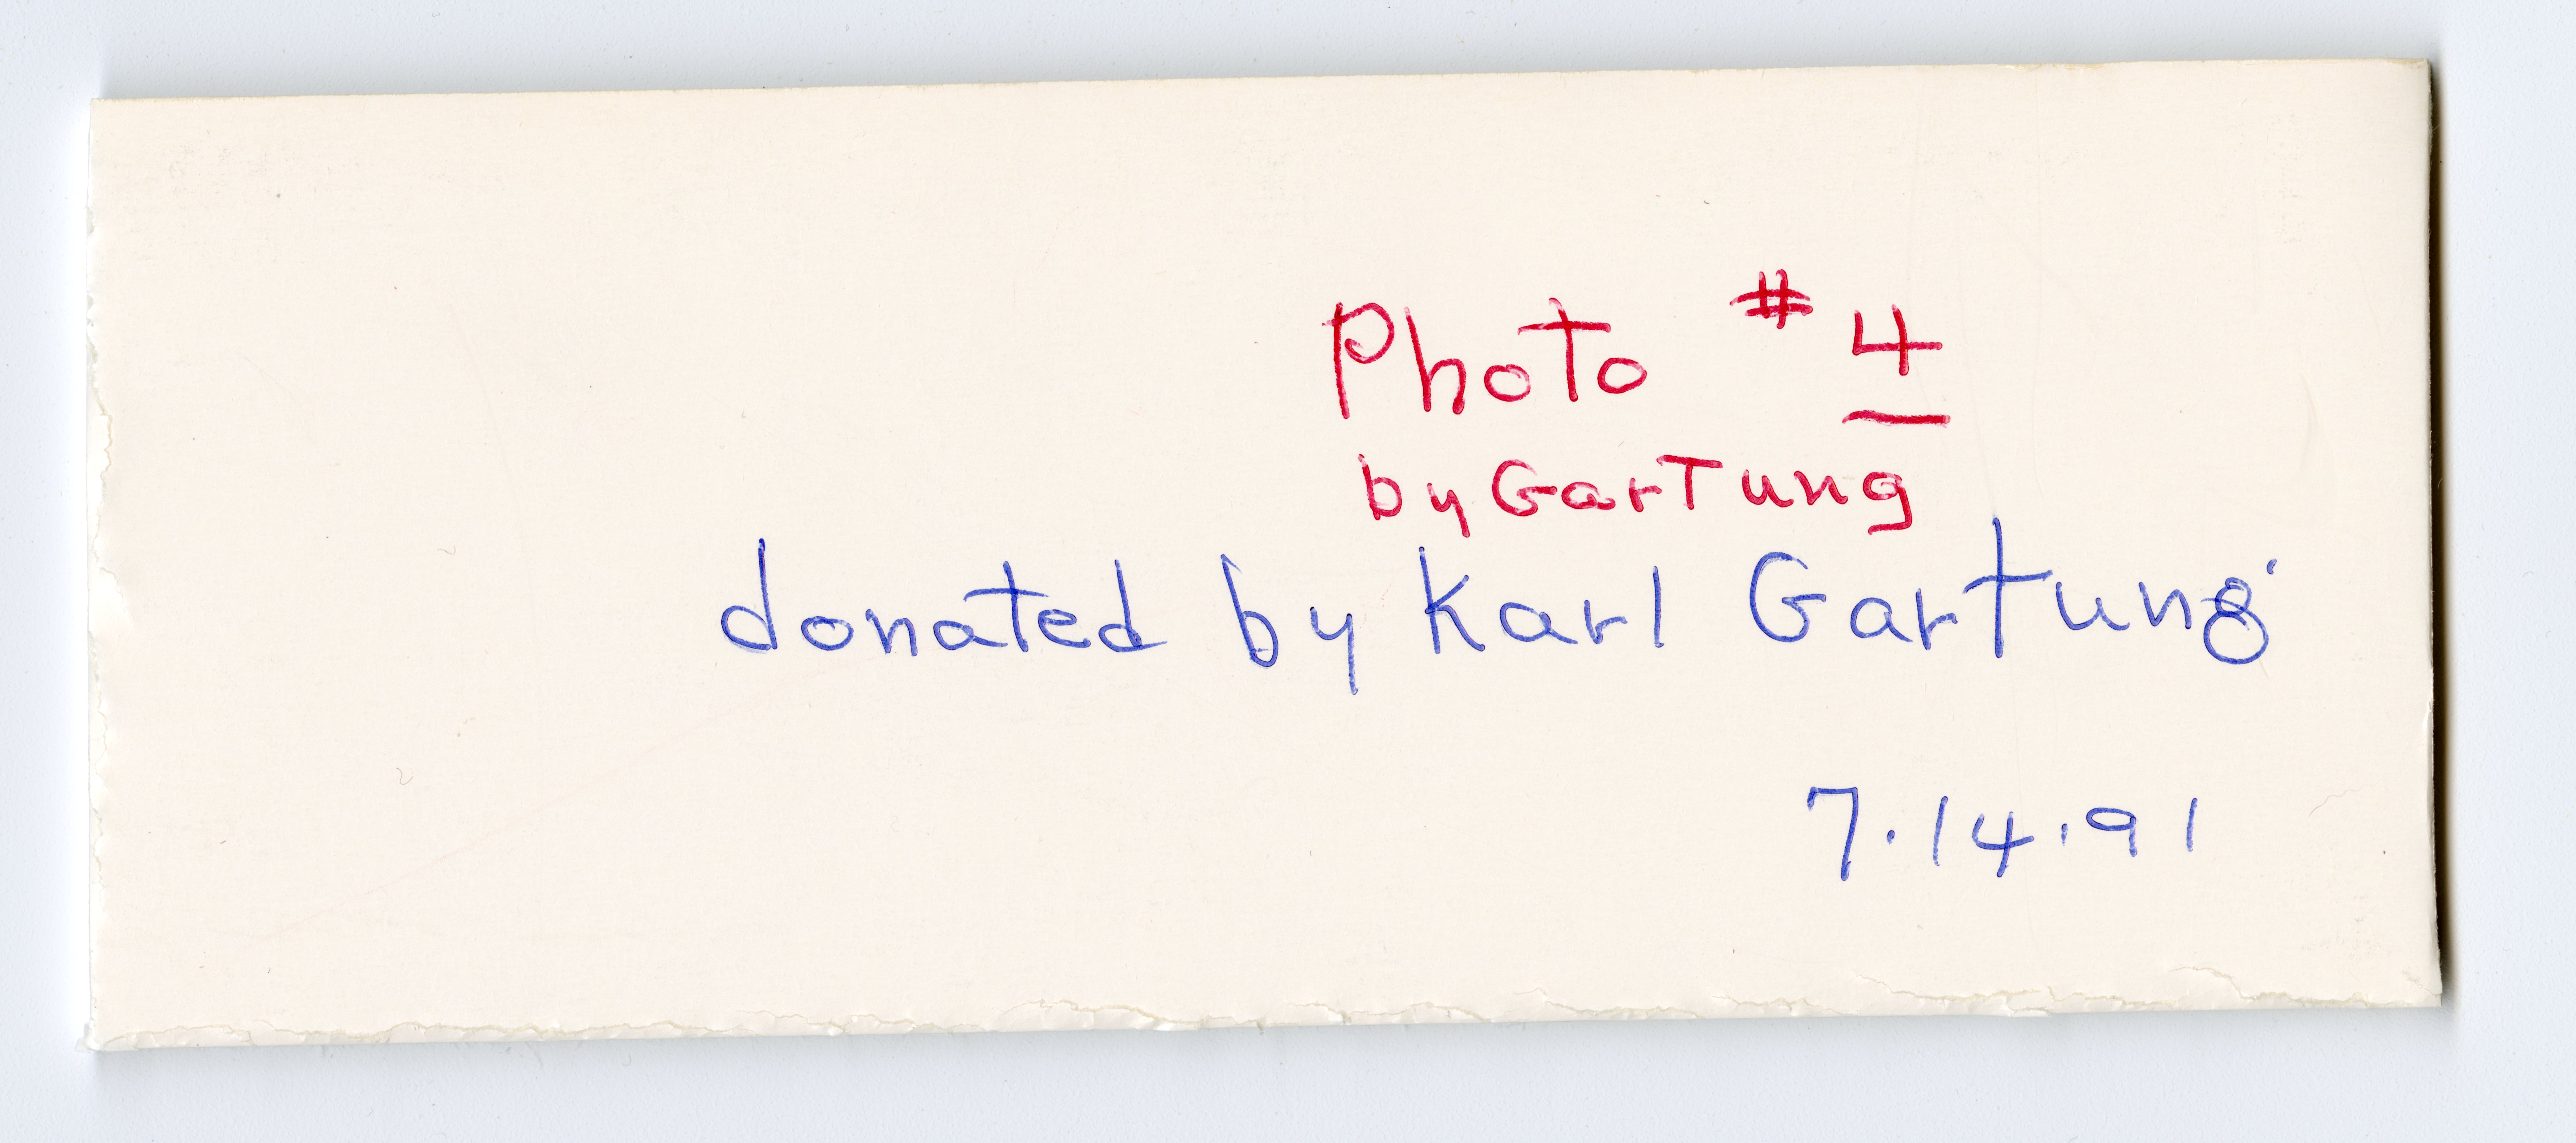 Photo # 4
by Gartung
donated by Karl Gartung
7.14.91